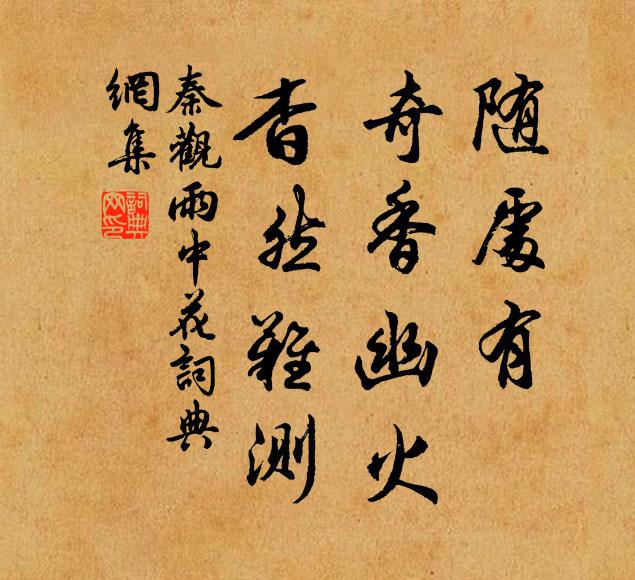 随處有
奇香幽火
杳然難測
秦觀雨中花詞典
網集
詞典
网印